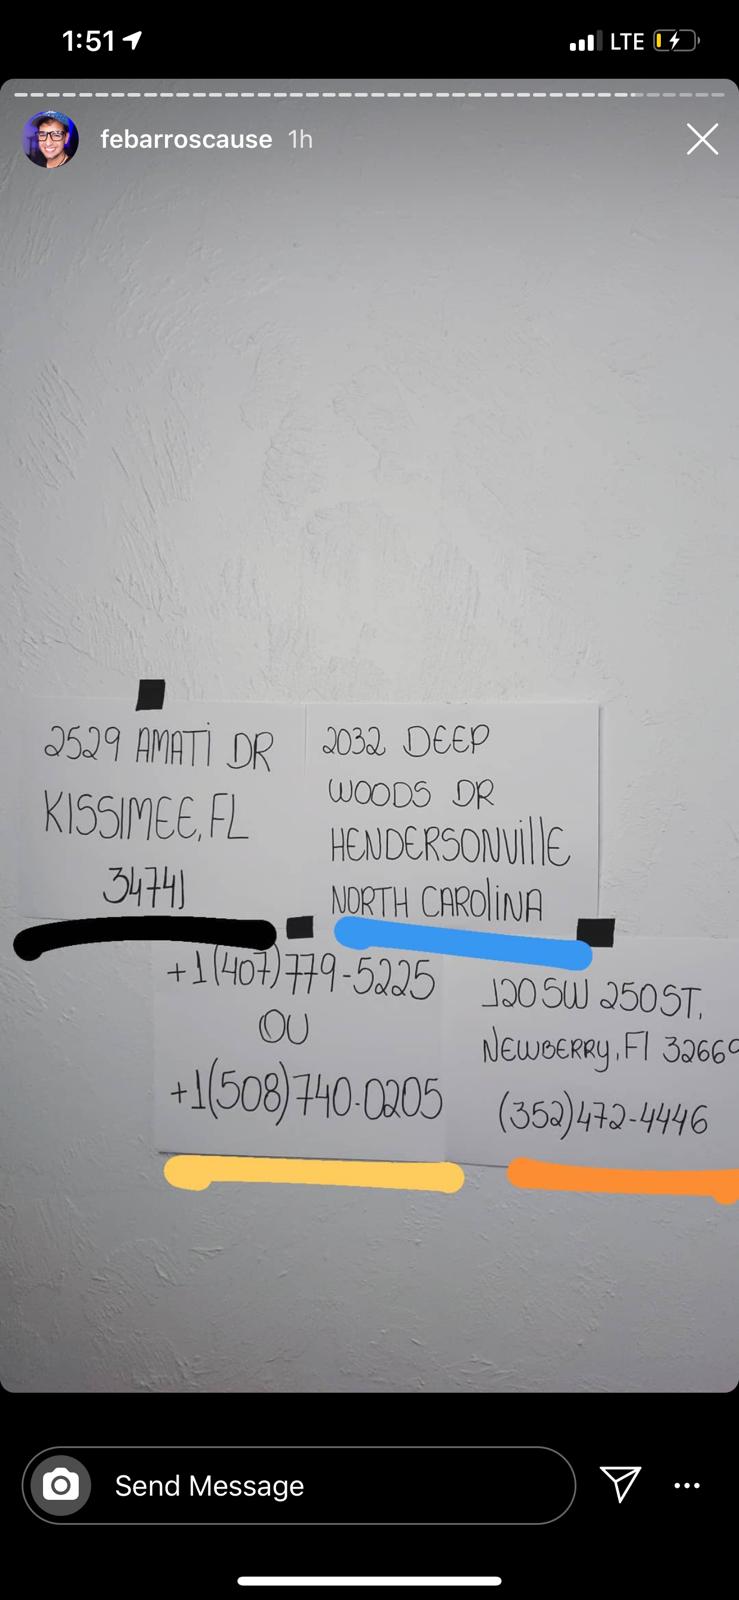 1:51
LTE
febarroscause 1h
2529 AMATI DR
KISSIMEE, FL
34741
2032 DEEP
WOODS DR
HENDERSONVillE
NORTH CAROliNA
+1(407)779-5225
OU
+1(508)740-0205
120 SW 250 ST,
NEWBERRY, Fl 32669
(352)472-4446
Send Message